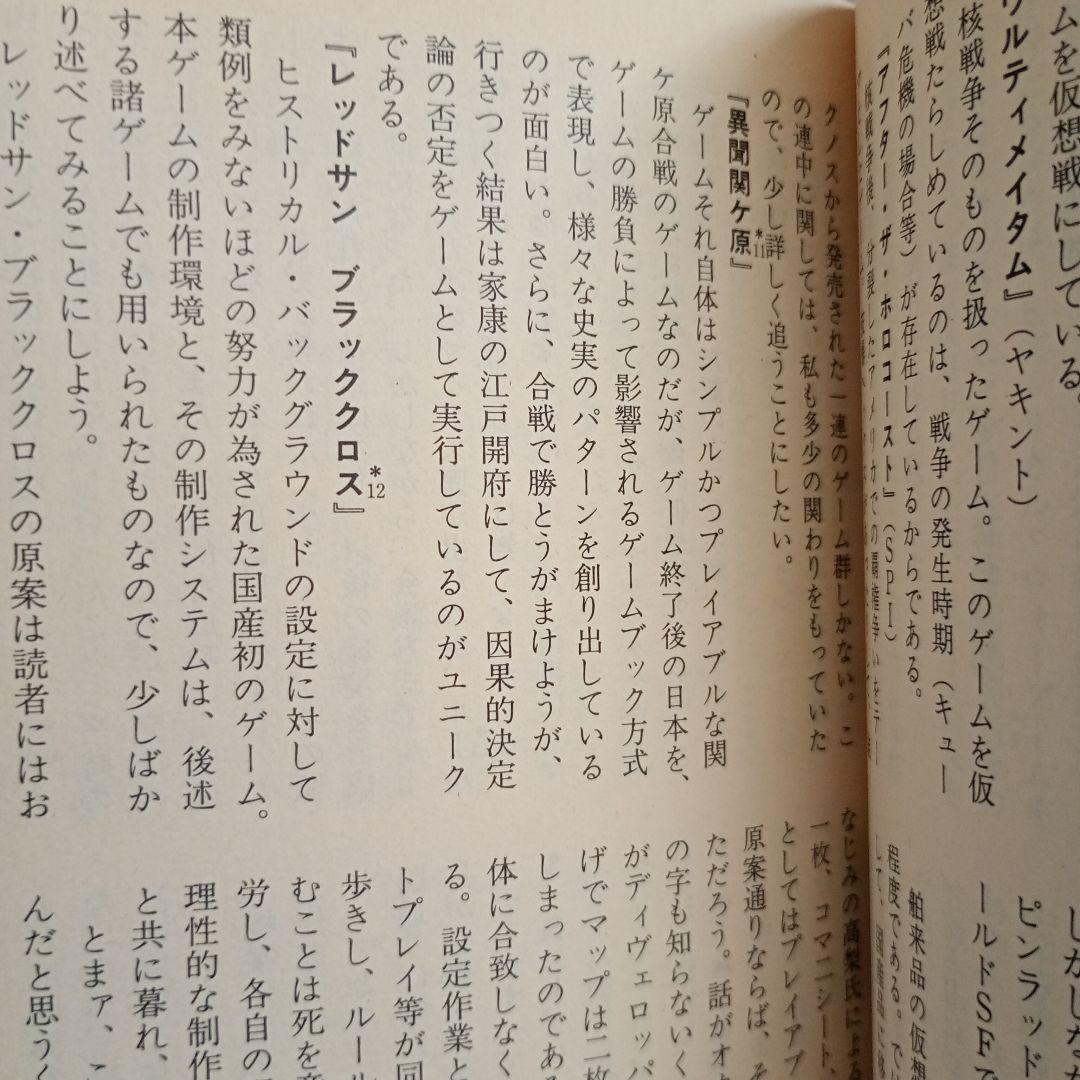 ムを仮想戦にしている。
ウルティメイタム』（ヤキント）
核戦争そのものを扱ったゲーム。このゲームを仮
想戦たらしめているのは、戦争の発生時期（キュー
バ危機の場合等）が存在しているからである。
『アフター・ザ・ホロコースト』（ＳＰＩ）
核戦争後、分裂したアメリカでの覇権争いをテー
しかしな
ピンラッド
ールドＳＦで
舶来品の仮想
程度である。では
クノスから発売された一連のゲーム群しかない。こ
の連中に関しては、私も多少の関わりをもっていた
ので、少し詳しく追うことにしたい。
『異聞関ケ原』*11
ゲームそれ自体はシンプルかつプレイアブルな関
ケ原合戦のゲームなのだが、ゲーム終了後の日本を、
ゲームの勝負によって影響されるゲームブック方式
で表現し、様々な史実のパターンを創り出している
のが面白い。さらに、合戦で勝とうがまけようが、
行きつく結果は家康の江戸開府にして、因果的決定
論の否定をゲームとして実行しているのがユニーク
である。
『レッドサン　ブラッククロス』*12
ヒストリカル・バックグラウンドの設定に対して
類例をみないほどの努力が為された国産初のゲーム。
本ゲームの制作環境と、その制作システムは、後述
する諸ゲームでも用いられたものなので、少しばか
り述べてみることにしよう。
レッドサン・ブラッククロスの原案は読者にはお
なじみの高梨氏による
一枚、コマ二シート、
としてはプレイアブ
原案通りならば、そ
ただろう。話がオ
の字も知らないく
がディヴェロッパ
げでマップは二枚
しまったのである
体に合致しなく
る。設定作業と
トプレイ等が同
歩きし、ルール
むことは死を意
労し、各自の
理性的な制作
と共に暮れ、
とまァ、こ
んだと思うく